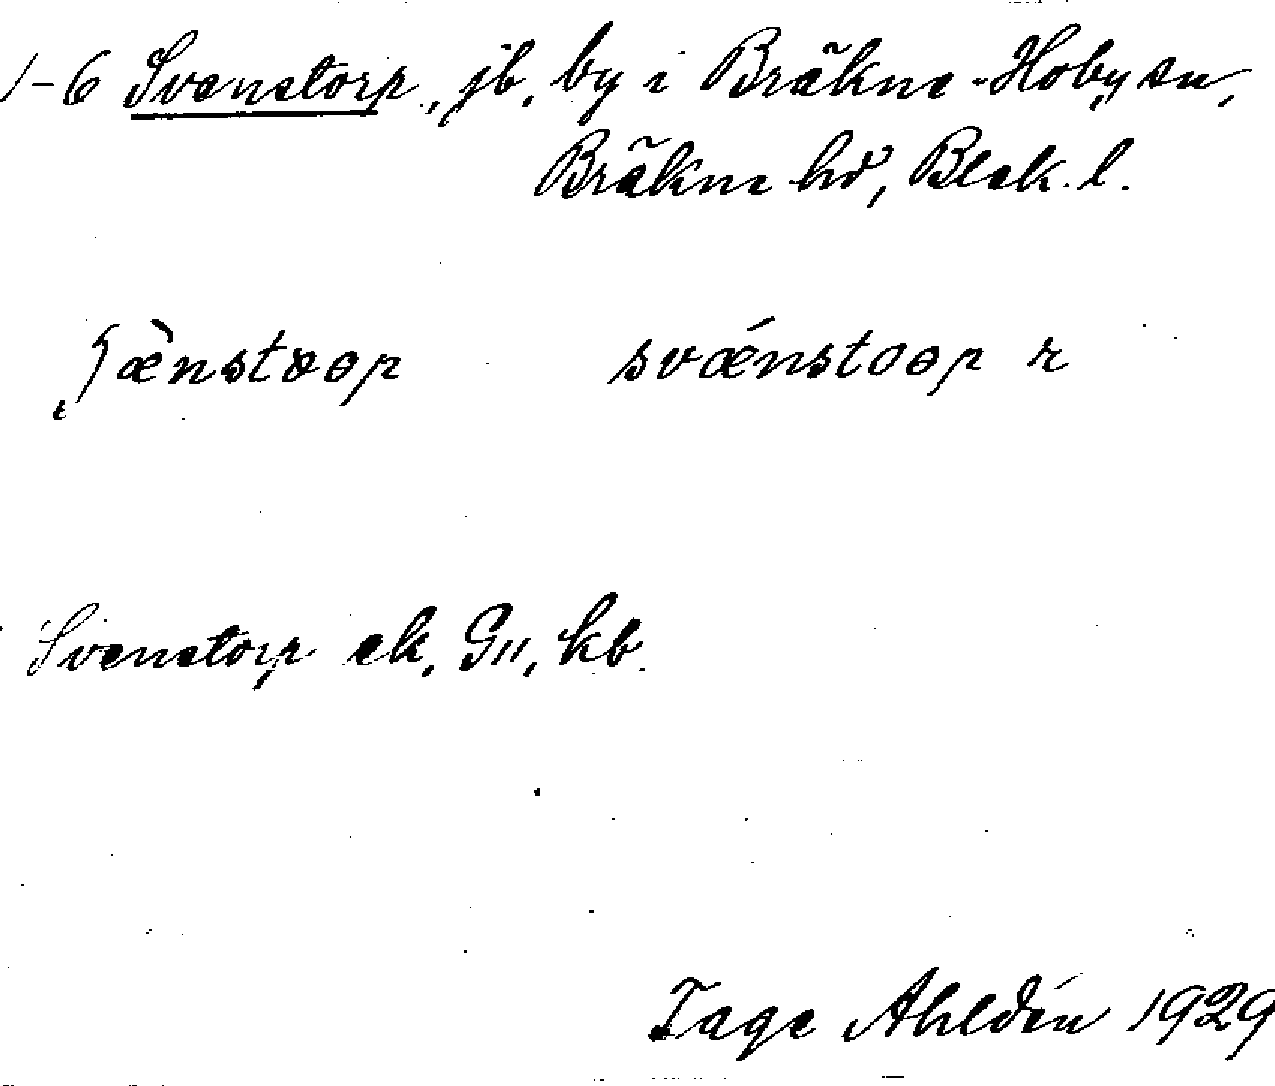 1-6 Svenstorp, jb, by i Bräkne-Hoby sn,
Bräkne hd, Blek. l.
svǽnstoop r
Svenstorp ek, G11, kb.
Tage Ahldén 1929